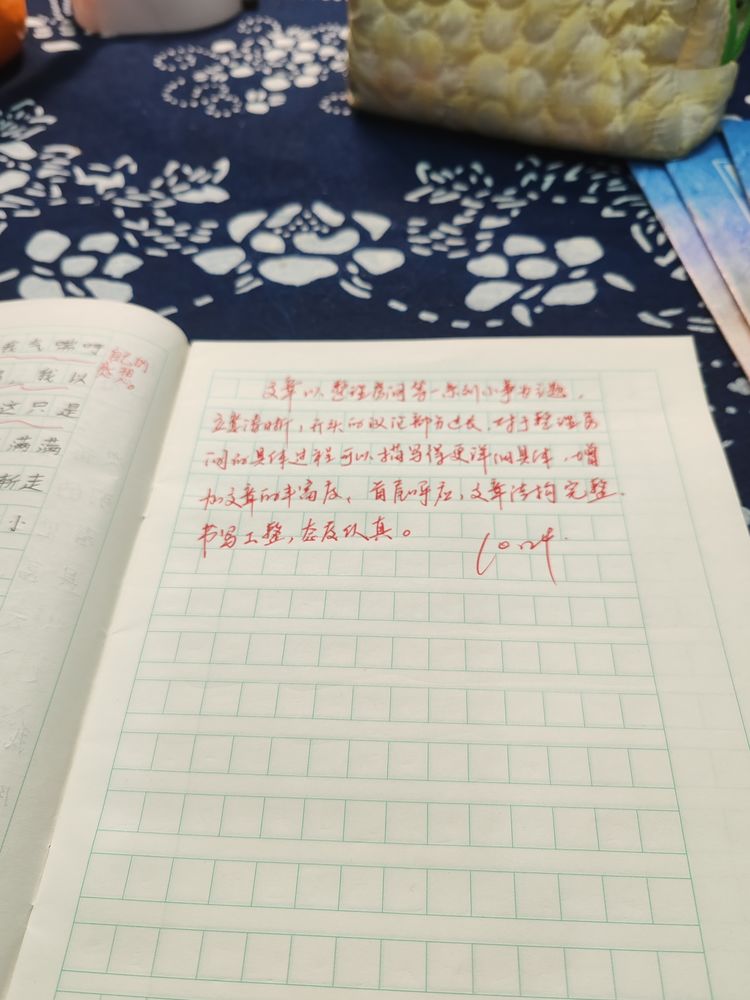 我气嘴呵
自己的
，我以
这只是
满满
渐走
小
文章以整理房间等一系列小事为主题，
立意清晰，开头的议论部分过长，对于整理房
间的具体过程可以描写得更详细具体，增
加文章的丰富度，首尾呼应，文章结构完整，
书写工整，态度认真。
10.24.